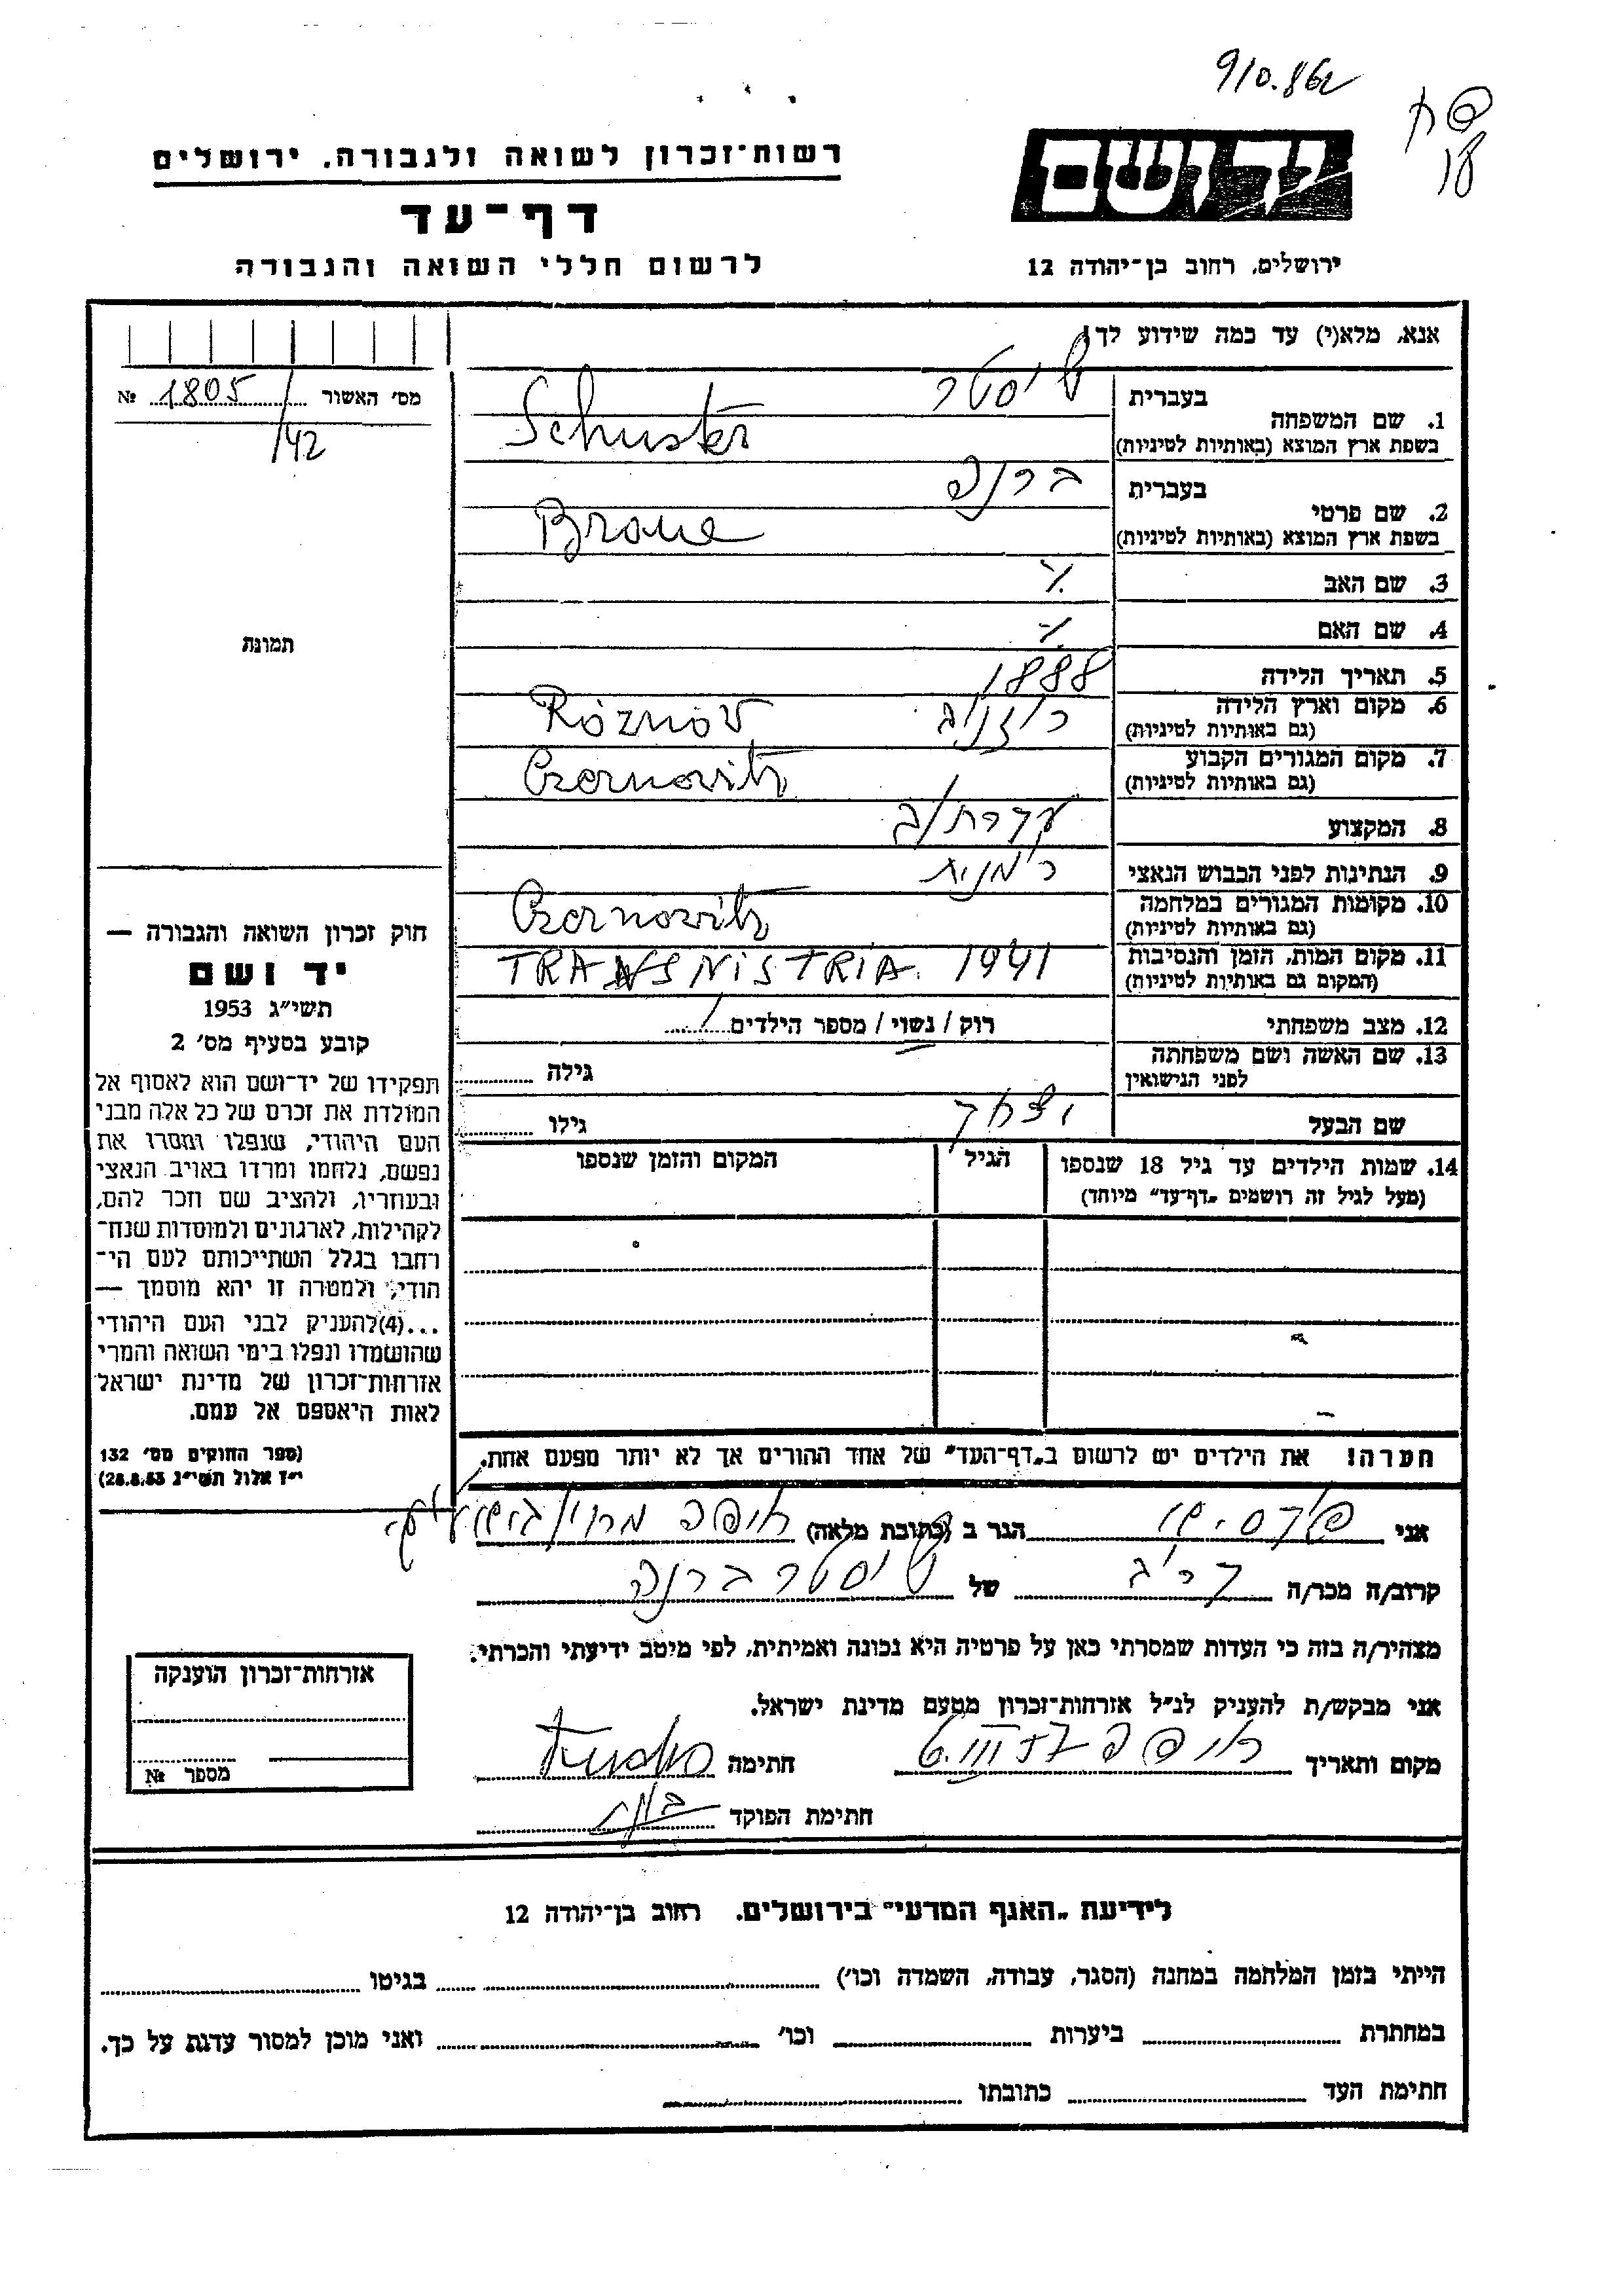 910.862
יד ושם
רשות־זכרון לשואה ולגבורה, ירושלים
דף־עד
ירושלים, רחוב בן־יהודה 12
לרשום חללי השואה והגבורה
אנא, מלא(י) עד כמה שידוע לך!
מס׳ האשור 1805 №
/42
תמונה
בעברית שוסטר
1. שם המשפחה
בשפת ארץ המוצא (באותיות לטיניות) Schuster
בעברית ברנה
2. שם פרטי
בשפת ארץ המוצא (באותיות לטיניות) Brane
3. שם האב
4. שם האם
5. תאריך הלידה 1888
6. מקום וארץ הלידה רוזנוב Róznóv
(גם באותיות לטיניות)
7. מקום המגורים הקבוע Czernovitz
(גם באותיות לטיניות)
8. המקצוע עקרת/ב
9. הנתינות לפני הכבוש הנאצי רומנית
10. מקומות המגורים במלחמה Czernovitz
(גם באותיות לטיניות)
11. מקום המות, הזמן והנסיבות TRANSNISTRIA. 1941
(המקום גם באותיות לטיניות)
12. מצב משפחתי רוק / נשוי / מספר הילדים
13. שם האשה ושם משפחתה
לפני הנישואין גילה
שם הבעל יצחק גילו
14. שמות הילדים עד גיל 18 שנספו הגיל המקום והזמן שנספו
(מעל לגיל זה רושמים „דף־עד״ מיוחד)
הערה! את הילדים יש לרשום ב„דף־העד״ של אחד ההורים אך לא יותר מפעם אחת.
חוק זכרון השואה והגבורה —
יד ושם
תשי״ג 1953
קובע בסעיף מס׳ 2
תפקידו של יד־ושם הוא לאסוף אל
המולדת את זכרם של כל אלה מבני
העם היהודי, שנפלו ומסרו את
נפשם, נלחמו ומרדו באויב הנאצי
ובעוזריו, ולהציב שם וזכר להם,
לקהילות, לארגונים ולמוסדות שנח־
רחבו בגלל השתייכותם לעם הי־
הודי, ולמטרה זו יהא מוסמך —
...(4)להעניק לבני העם היהודי
שהושמדו ונפלו בימי השואה והמרי
אזרחות־זכרון של מדינת ישראל
לאות היאספם אל עמם.
(ספר החוקים מס׳ 132
י״ז אלול תשי״ג 28.8.53)
אני הגר ב (כתובת מלאה) חיפה
קרוב/ה מכר/ה קרוב של שוסטר ברנה
מצהיר/ה בזה כי העדות שמסרתי כאן על פרטיה היא נכונה ואמיתית, לפי מיטב ידיעתי והכרתי.
אני מבקש/ת להעניק לנ״ל אזרחות־זכרון מטעם מדינת ישראל.
מקום ותאריך חיפה חתימה
חתימת הפוקד
אזרחות־זכרון הוענקה
מספר №
לידיעת „האגף המדעי״ בירושלים. רחוב בן־יהודה 12
הייתי בזמן המלחמה במחנה (הסגר, עבודה, השמדה וכו׳) בגיטו
במחתרת ביערות וכו׳ ואני מוכן למסור עדות על כך.
חתימת העד כתובתו